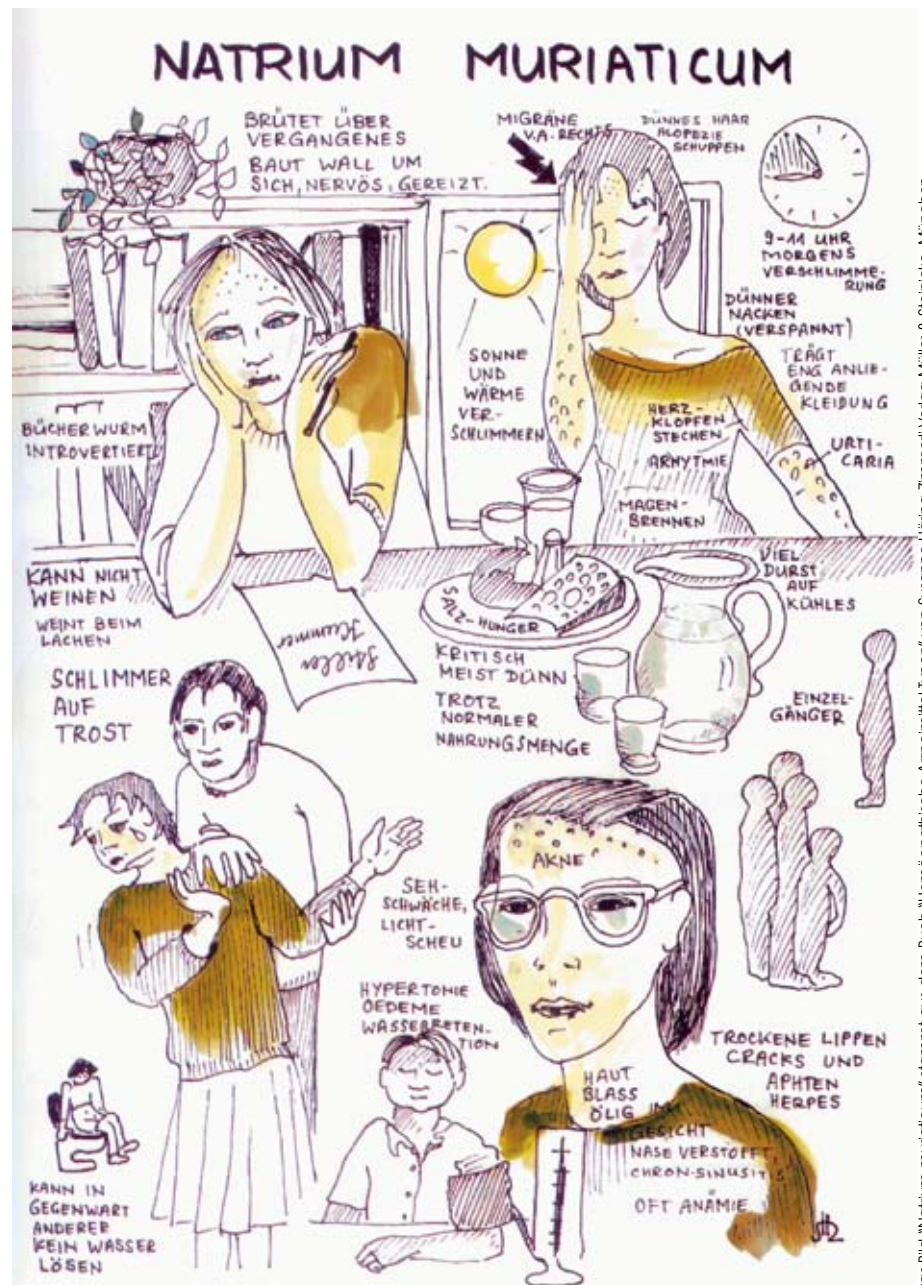 NATRIUM MURIATICUM
BRÜTET ÜBER
VERGANGENES
BAUT WALL UM
SICH, NERVÖS, GEREIZT.
MIGRÄNE
V.A. RECHTS
DÜNNES HAAR
ALOPEZIE
SCHUPPEN
9-11 UHR
MORGENS
VERSCHLIMME-
RUNG
DÜNNER
NACKEN
(VERSPANNT)
TRÄGT
ENG ANLIE-
GENDE
KLEIDUNG
SONNE
UND
WÄRME
VER-
SCHLIMMERN
HERZ-
KLOPFEN
STECHEN
ARHYTMIE
URTI-
CARIA
MAGEN-
BRENNEN
BÜCHERWURM
INTROVERTIERT
KANN NICHT
WEINEN
WEINT BEIM
LACHEN
Stiller
Kummer
SALZ-HUNGER
VIEL
DURST
AUF
KÜHLES
KRITISCH
MEIST DÜNN
TROTZ
NORMALER
NAHRUNGSMENGE
EINZEL-
GÄNGER
SCHLIMMER
AUF
TROST
AKNE
SEH-
SCHWÄCHE,
LICHT-
SCHEU
HYPERTONIE
OEDEME
WASSERRETEN-
TION
TROCKENE LIPPEN
CRACKS UND
APHTEN
HERPES
HAUT
BLASS
ÖLIG IM
GESICHT
NASE VERSTOPFT,
CHRON. SINUSITIS
OFT ANÄMIE
KANN IN
GEGENWART
ANDERER
KEIN WASSER
LÖSEN